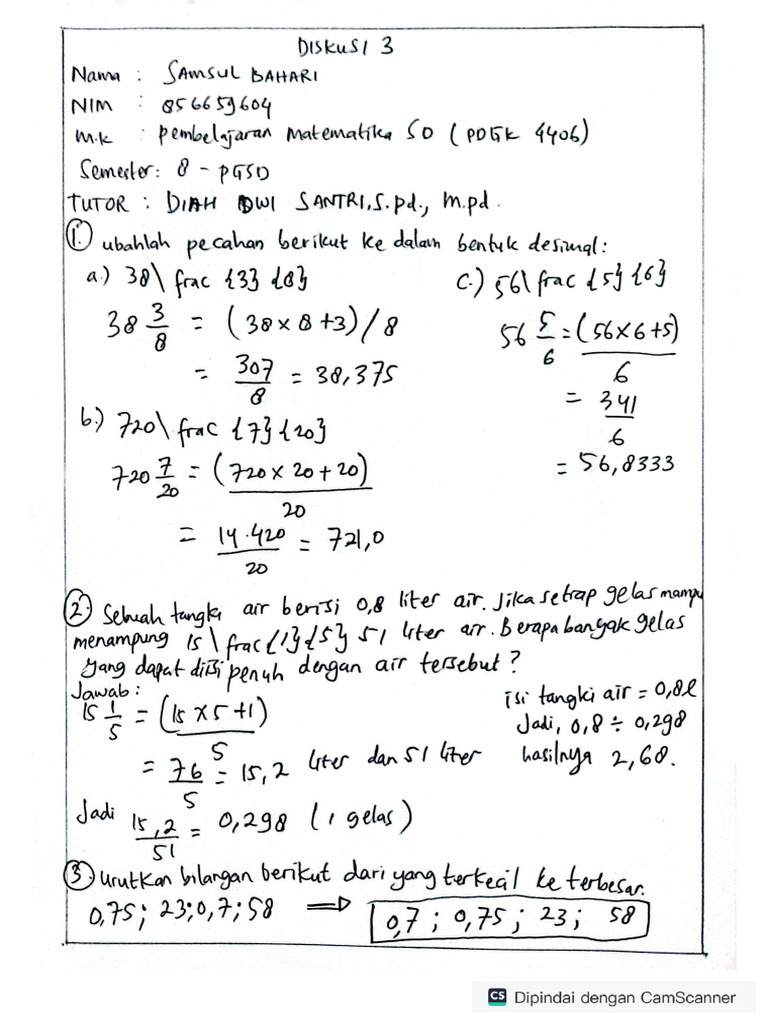 DISKUSI 3
Nama : SAMSUL BAHARI
NIM : 856659604
M.K : pembelajaran matematika SD ( PDGK 4406)
Semester: 8 - PGSD
TUTOR : DIAH DWI SANTRI,S.pd., m.pd.
1. ubahlah pecahan berikut ke dalam bentuk desimal:
a.) 38\ frac {3} {8}
38 3/8 = (38 x 8 +3) / 8
= 307/8 = 38,375
b.) 720\ frac {7} {20}
720 7/20 = (720 x 20 + 20)/20
= 14.420/20 = 721,0
c.) 56\ frac {5} {6}
56 5/6 = (56x6+5)/6
= 341/6
= 56,8333
2. Sebuah tangki air berisi 0,8 liter air. Jika setiap gelas mampu
menampung 15 \ frac {1} {5} 51 liter air. Berapa banyak gelas
yang dapat diisi penuh dengan air tersebut?
Jawab:
15 1/5 = (15 x 5 +1)/5
= 76/5 = 15,2 liter dan 51 liter
Jadi 15,2/51 = 0,298 (1 gelas)
isi tangki air = 0,8l
Jadi, 0,8 ÷ 0,298
hasilnya 2,68.
3. urutkan bilangan berikut dari yang terkecil ke terbesar.
0,75; 23; 0,7; 58 ⇒ 0,7 ; 0,75 ; 23 ; 58
CS Dipindai dengan CamScanner